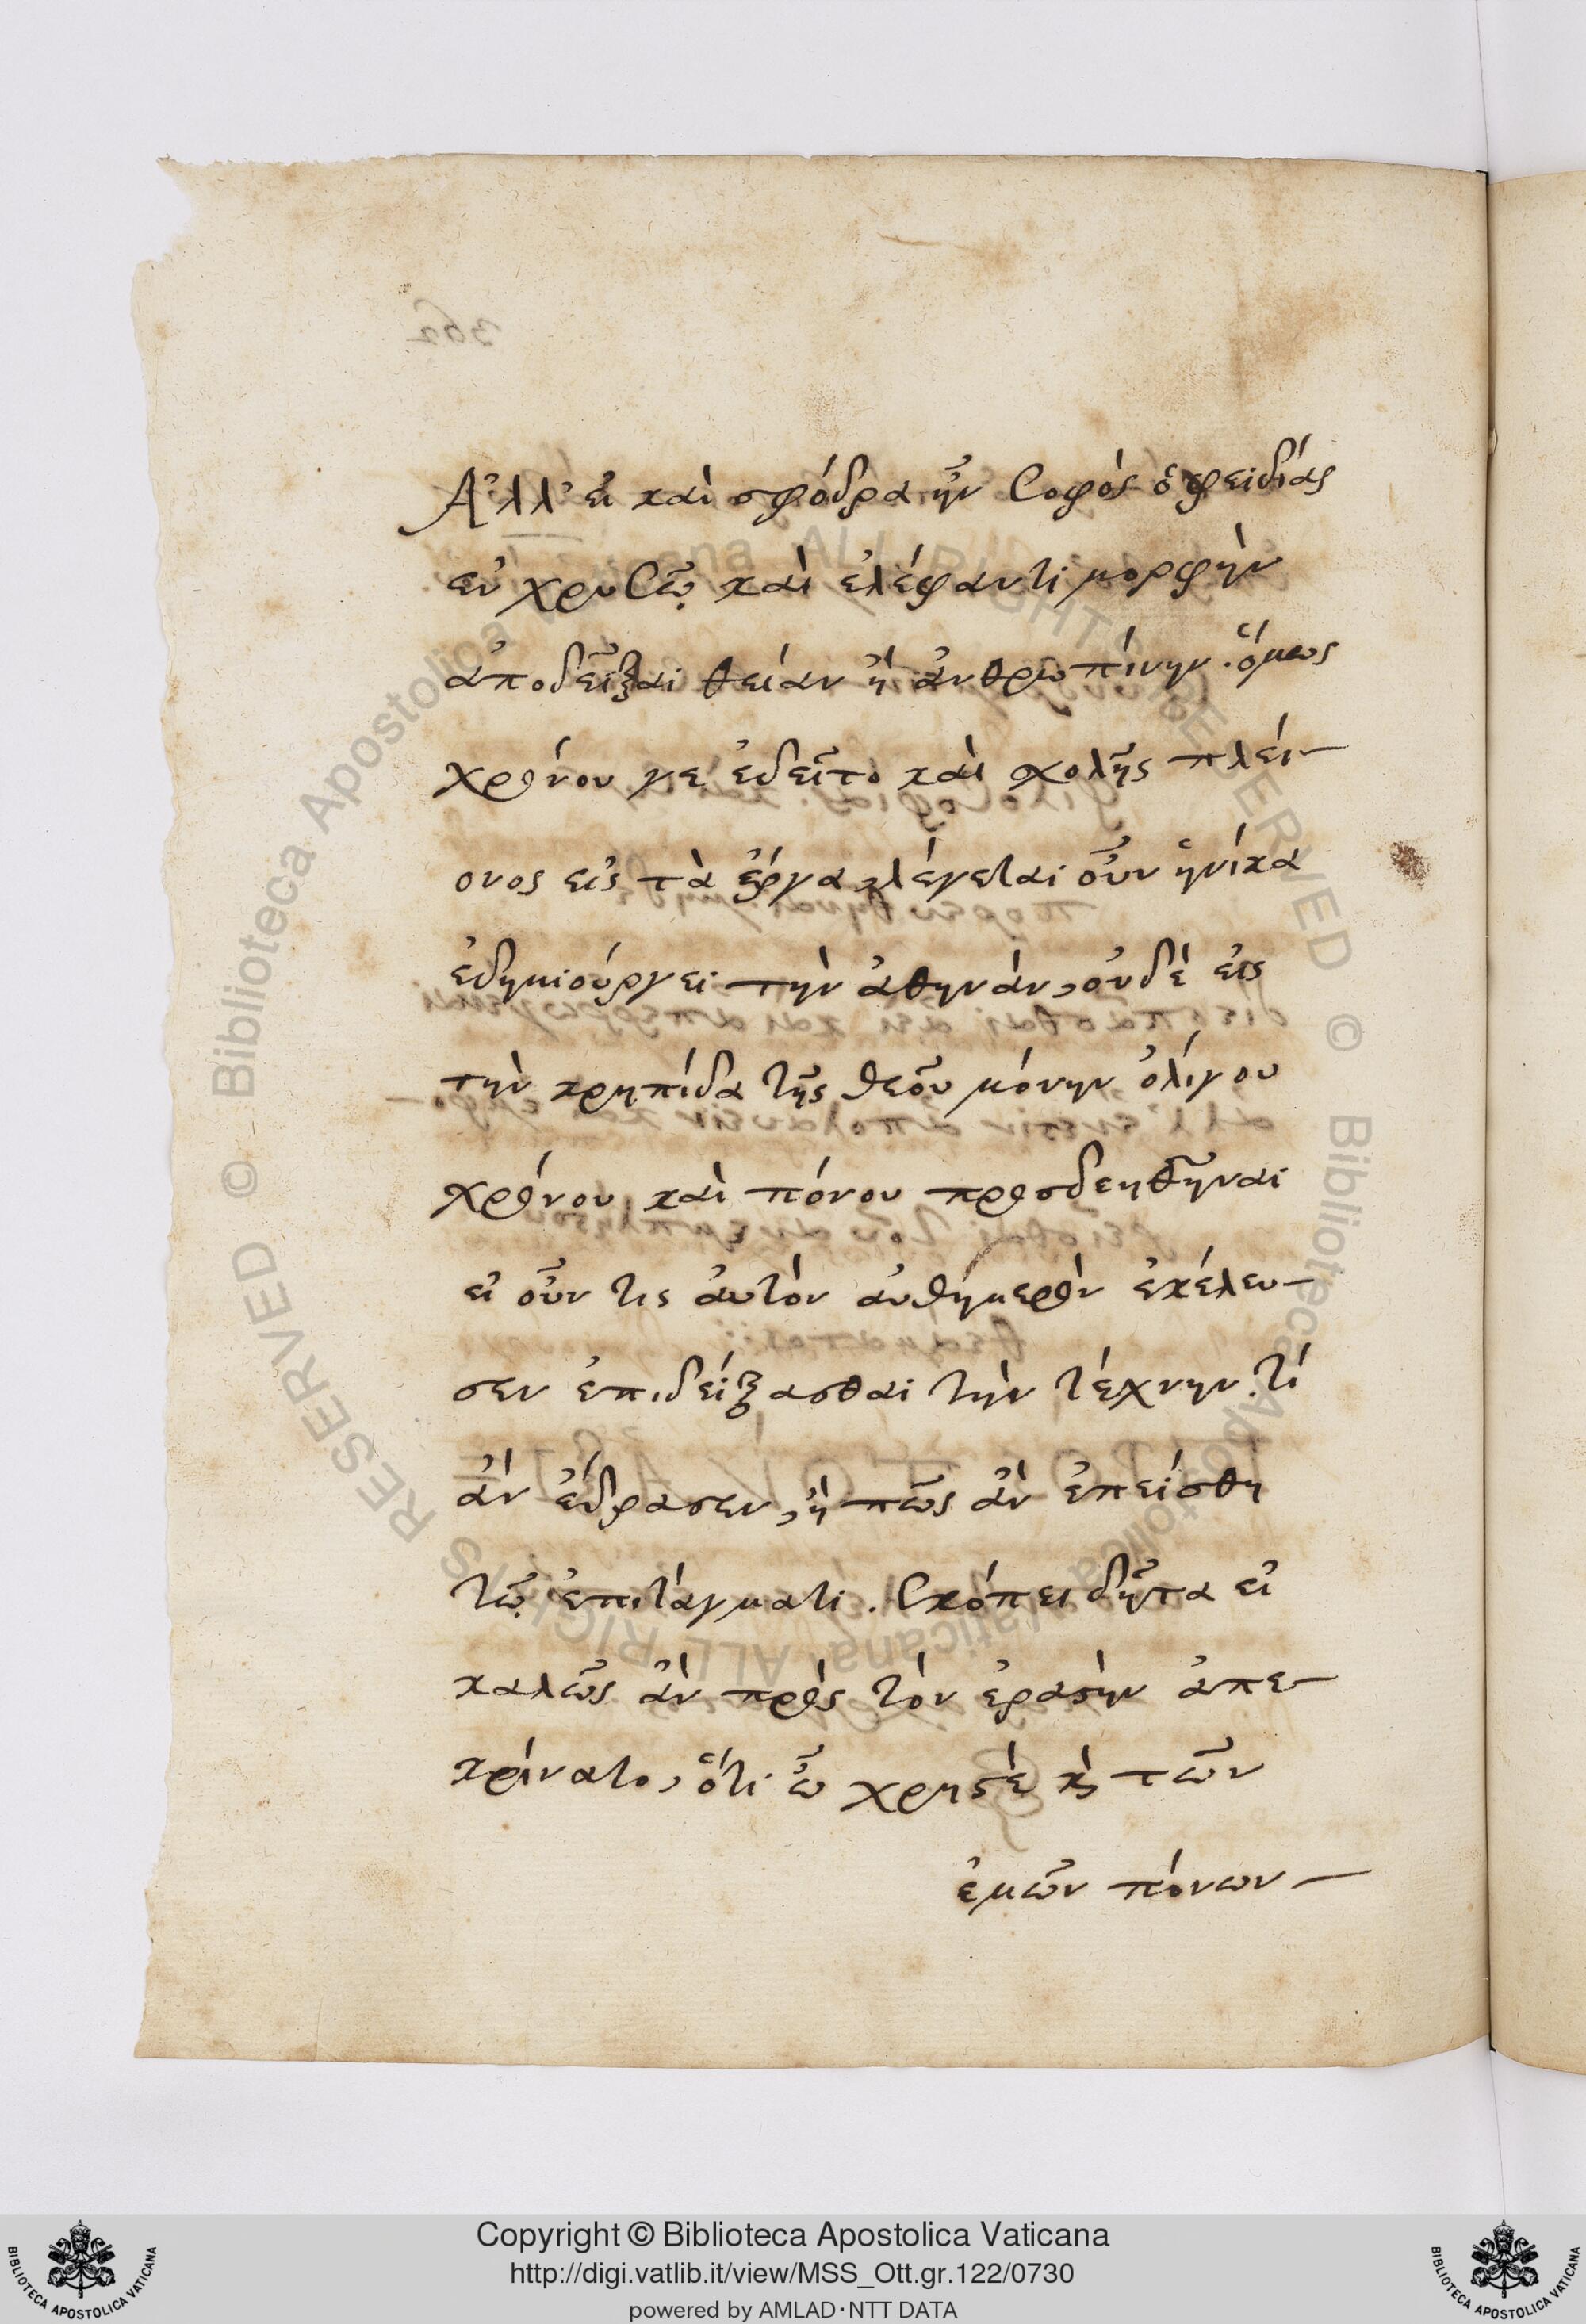 Ἀλλ' εἰ καὶ σφόδρα ἦν σοφὸς ὁ φειδίας
ἐν χρυσῷ καὶ ἐλέφαντι μορφὴν
ἀποδεῖξαι θείαν ἢ ἀνθρωπίνην. ὅμως
χρόνου γε ἐδεῖτο καὶ σχολῆς πλεί-
ονος εἰς τὰ ἔργα, λέγεται οὖν ἡνίκα
ἐδημιούργει τὴν ἀθηνὰν, οὐδὲ εἰς
τὴν κρηπίδα τῆς θεοῦ μόνην ὀλίγου
χρόνου καὶ πόνου προσδεηθῆναι
εἰ οὖν τις αὐτὸν αὐθήμερὸν ἐκέλευ-
σεν ἐπιδείξασθαι τὴν τέχνην. τί
ἂν ἔδρασεν, ἢ πῶς ἂν ἐπείσθη
τῷ ἐπιτάγματι. σκόπει δῆτα εἰ
καλῶς ἂν πρὸς τὸν ἐραστὴν ἀπε-
κρίνατο, ὅτι ὦ χρηστὲ κὶ τῶν
ἐμῶν πόνων-
Copyright © Biblioteca Apostolica Vaticana
http://digi.vatlib.it/view/MSS_Ott.gr.122/0730
powered by AMLAD·NTT DATA
BIBLIOTECA APOSTOLICA VATICANA
BIBLIOTECA APOSTOLICA VATICANA